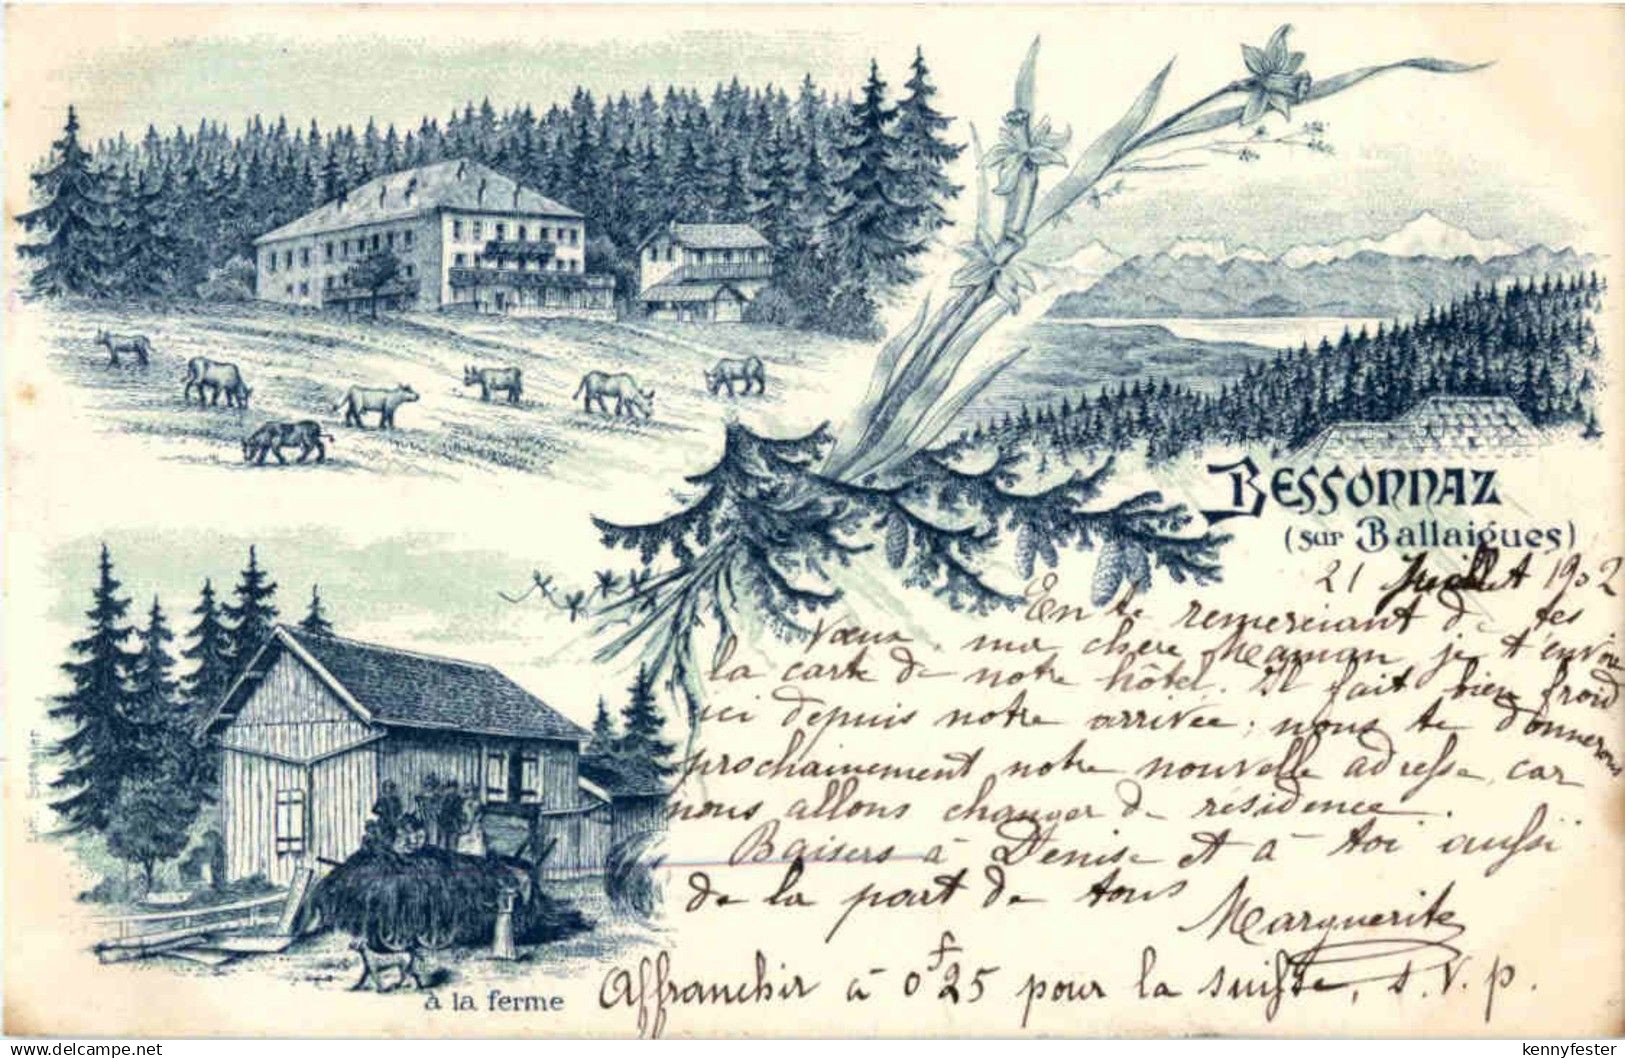 Bessonnaz
(sur Ballaigues)
21 Juillet 1902
En te remerciant de tes
vœux ma chère Maman je t'envoie
la carte de notre hôtel. Il fait bien froid
ici depuis notre arrivée; nous te donnerons
prochainement notre nouvelle adresse, car
nous allons changer de résidence.
Baisers à Denise et à toi aussi
de la part de tous
Marguerite
à la ferme
Affranchir à 0f25 pour la suisse, s.V.p.
delcampe.net
kennyfester